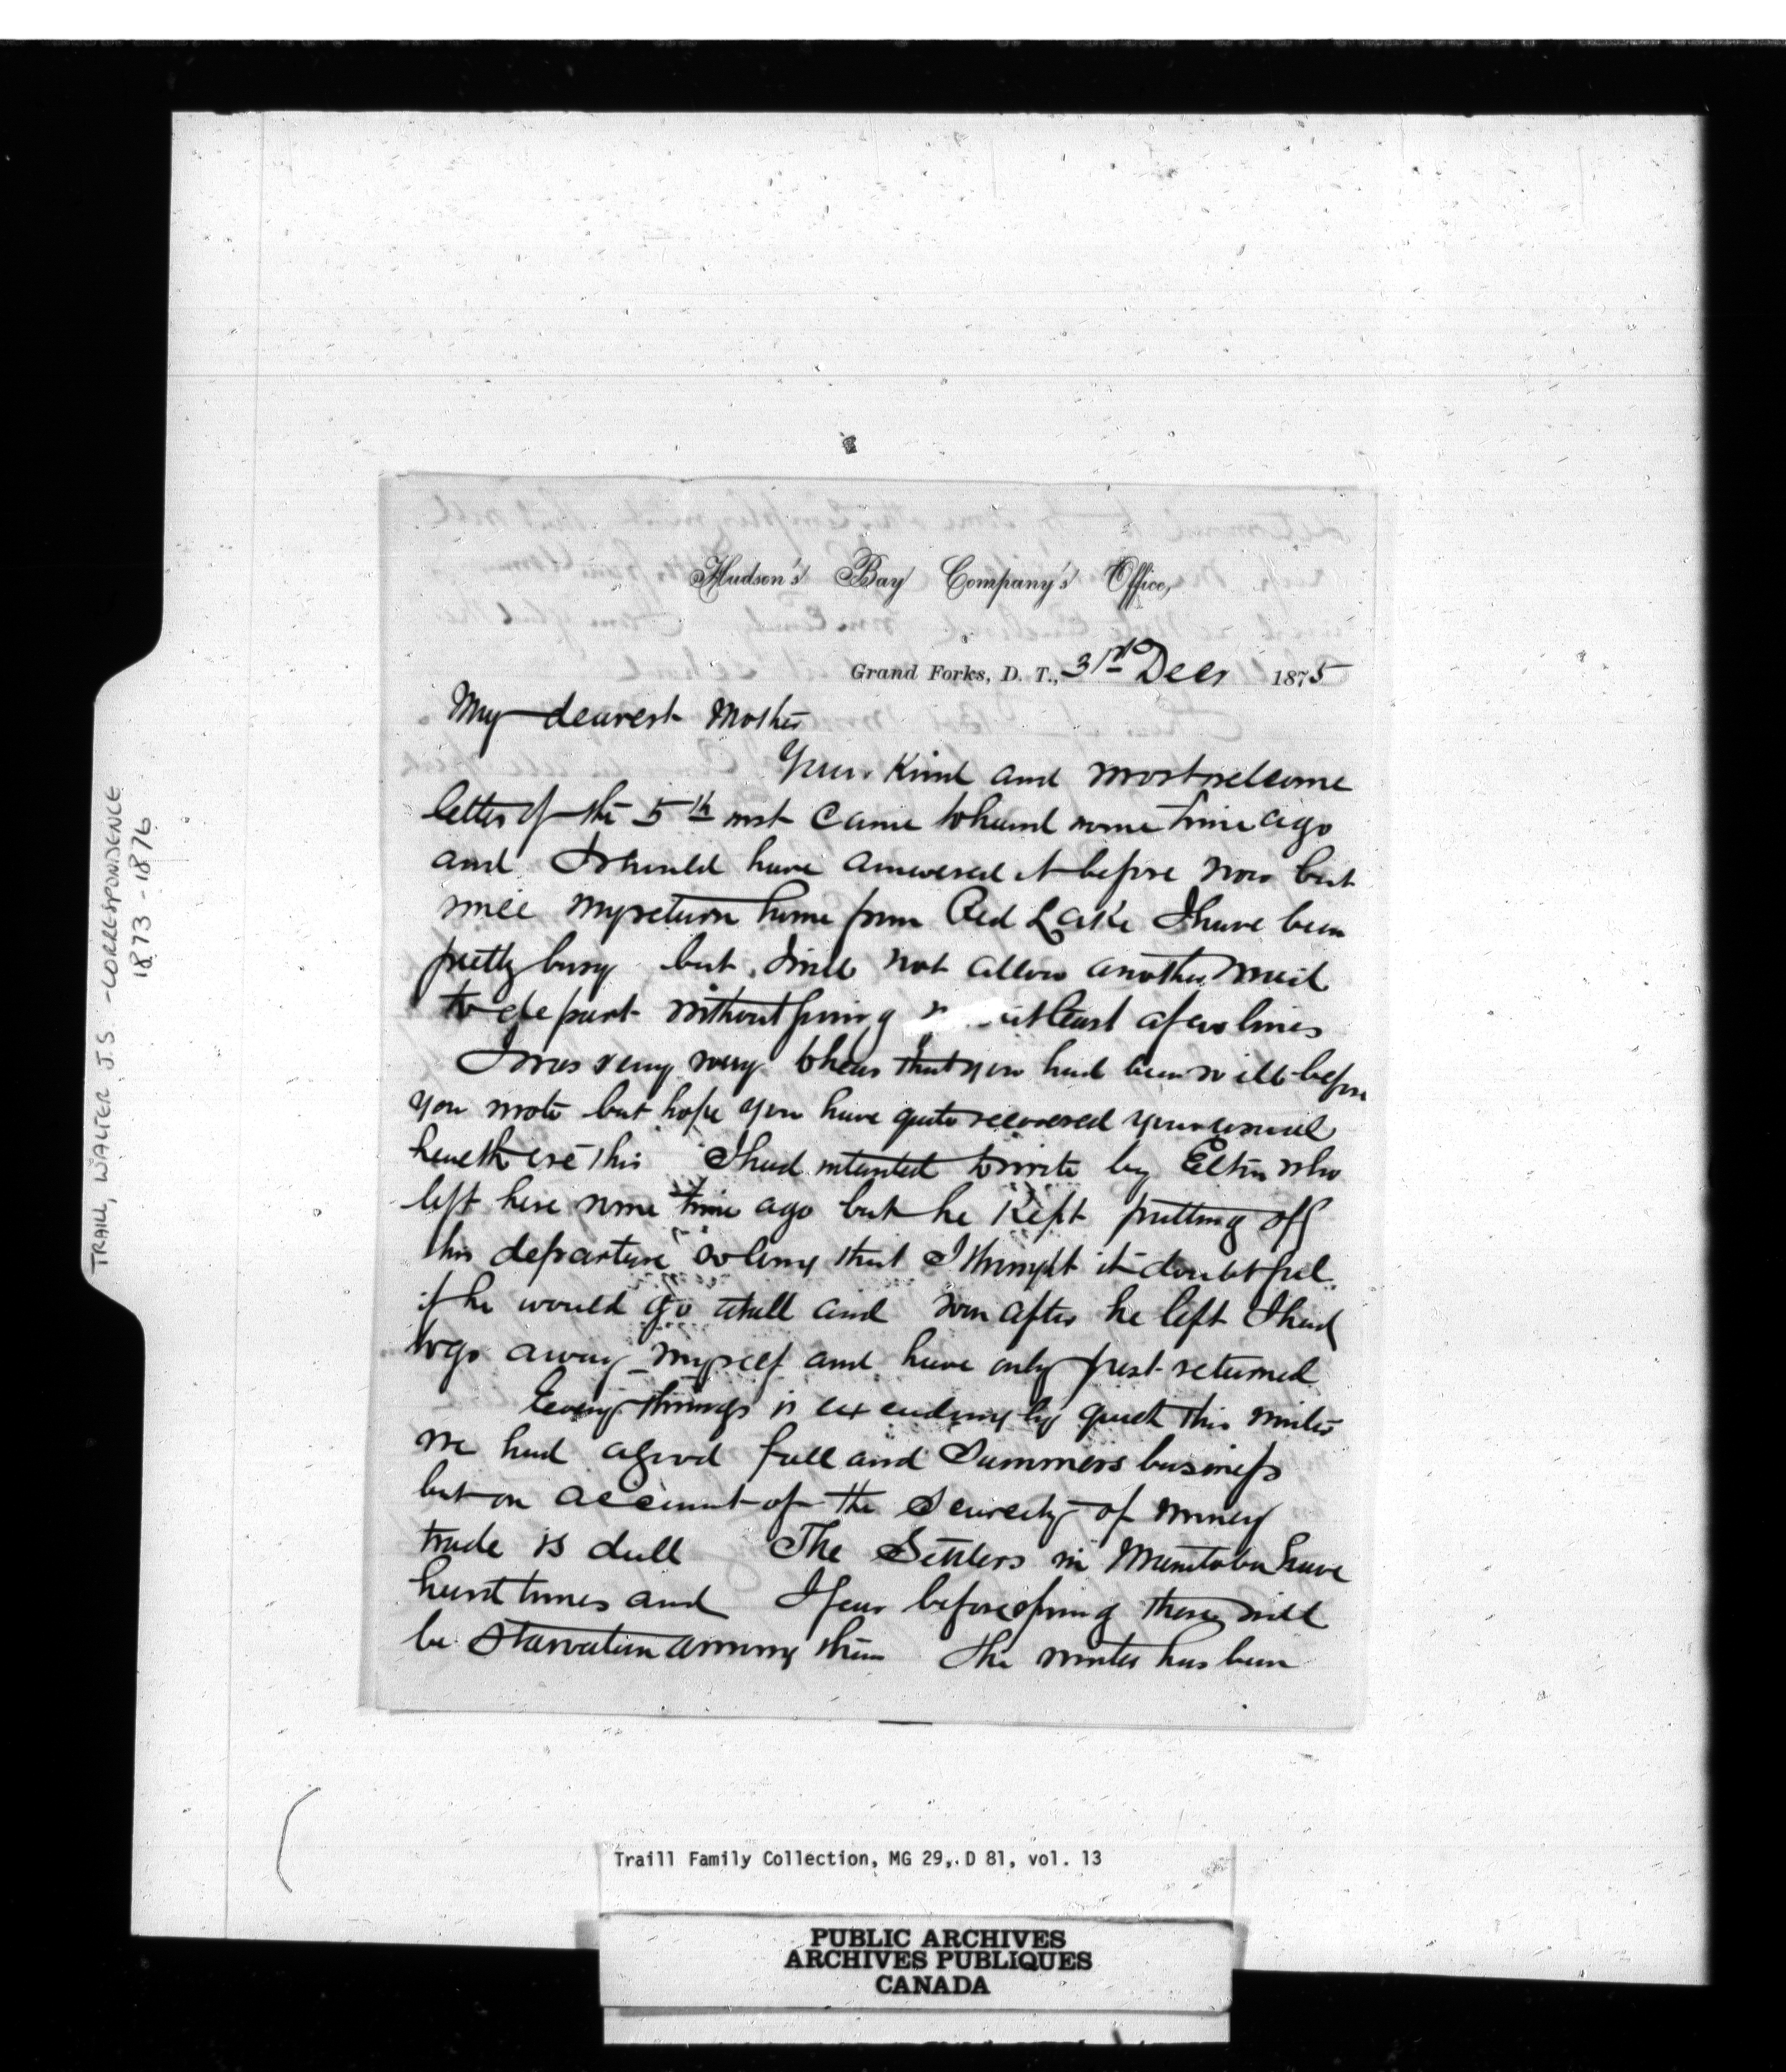 Hudson's Bay Company's Office,
Grand Forks, D. T., 31st Decr 1875
My dearest Mother
Your kind and most welcome
letter of the 5th inst came to hand some time ago
and I should have answered it before now but
since my return home from Red Lake I have been
pretty busy but I will not allow another mail
to depart without giving at least a few lines
I was very sorry to hear that you had been so ill before
you wrote but hope you have quite recovered your usual
health ere this I had intended to write by who
left here some time ago but he kept putting off
his departure so long that I thought it doubtful
if he would go at all and soon after he left I had
to go away myself and have only just returned
Every things is exceedingly quiet this winter
we had a good fall and Summers business
but on account of the Scarcity of money
trade is dull The Settlers in Manitoba have
hard times and I fear before spring there will
be Starvation among them The winter has been
TRAILL, WALTER J.S - CORRESPONDENCE
1873 - 1876
Traill Family Collection, MG 29, D 81, vol. 13
PUBLIC ARCHIVES
ARCHIVES PUBLIQUES
CANADA